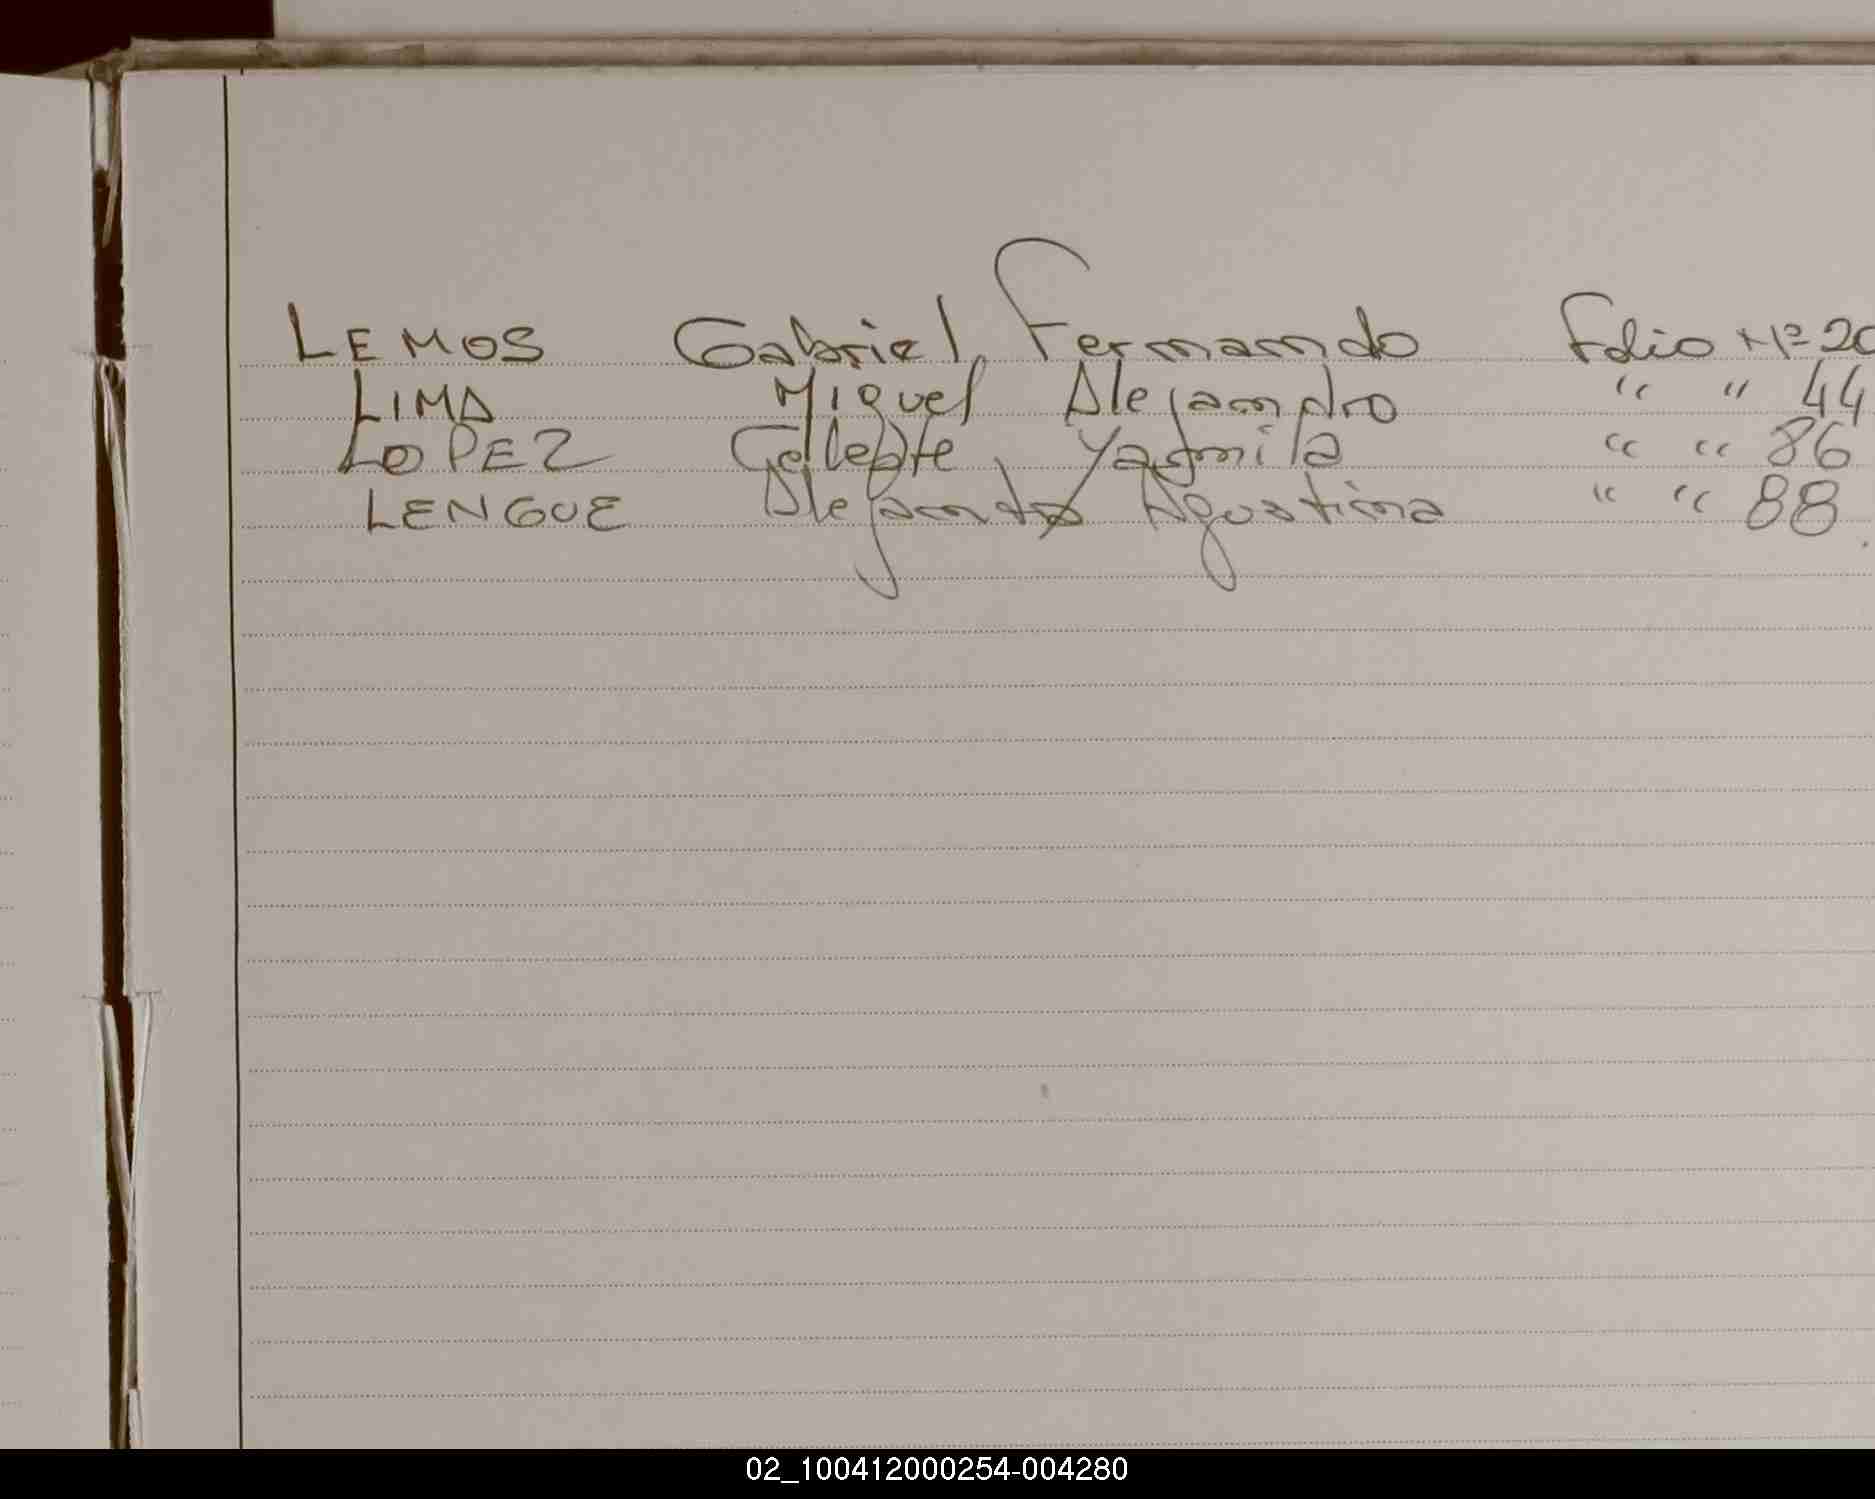 LEMOS Gabriel Fernando Folio Nº 20
LIMA Miguel Alejandro " " 44
LOPEZ Celeste Yasmila " " 86
LENGUE Alejandra Agustina " " 88
02_100412000254-004280